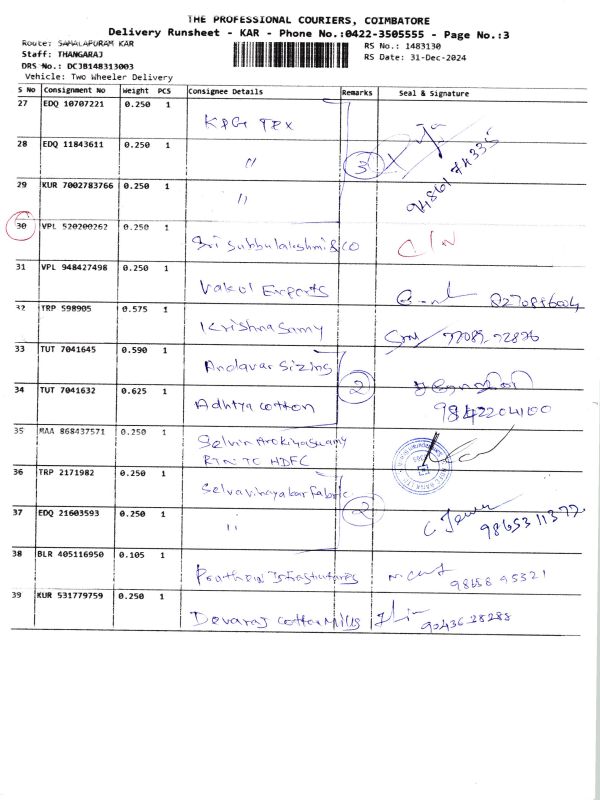 THE PROFESSIONAL COURIERS, COIMBATORE
Delivery Runsheet - KAR - Phone No.:0422-3505555 - Page No.:3
Route: SAMALAPURAM KAR
RS No.: 1483130
Staff: THANGARAJ
RS Date: 31-Dec-2024
DRS No.: DCJB148313003
Vehicle: Two Wheeler Delivery
S No Consignment No Weight PCS Consignee Details Remarks Seal & Signature
27 EDQ 10707221 0.250 1 KPG Tex
28 EDQ 11843611 0.250 1 〃 3
29 KUR 7002783766 0.250 1 〃
30 VPL 520200262 0.250 1 Sri Subbulakshmi & CO
31 VPL 948427498 0.250 1 Exports
32 TRP 598905 0.575 1 Krishnasamy
33 TUT 7041645 0.590 1 Andavar Sizing 2
34 TUT 7041632 0.625 1 Adhtya Cotton 9842204100
35 MAA 868437571 0.250 1 HDFC
36 TRP 2171982 0.250 1 Selvavinayakar Fabric
37 EDQ 21603593 0.250 1 〃 2
38 BLR 405116950 0.105 1 98658 95321
39 KUR 531779759 0.250 1 Devaraj Cotton Mills 90436 28288